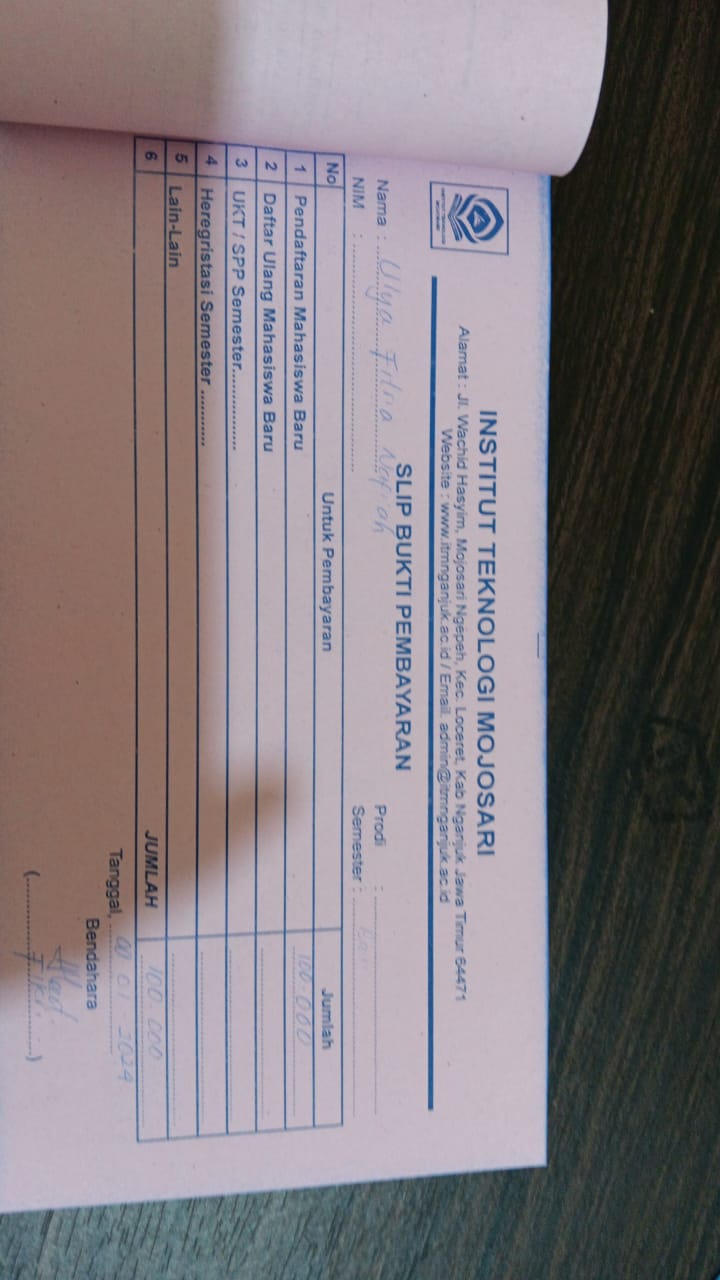 INSTITUT TEKNOLOGI MOJOSARI
Alamat : Jl. Wachid Hasyim, Mojosari Ngepeh, Kec. Loceret, Kab Nganjuk Jawa Timur 64471
Website : www.itmnganjuk.ac.id / Email. admin@itmnganjuk.ac.id
SLIP BUKTI PEMBAYARAN
Nama : Ulya Fitria Prodi :
NIM : Semester :
No Untuk Pembayaran Jumlah
1 Pendaftaran Mahasiswa Baru 100.000
2 Daftar Ulang Mahasiswa Baru
3 UKT / SPP Semester...............
4 Heregristasi Semester ...........
5 Lain-Lain
6 JUMLAH 100.000
Tanggal, 01 - 2024
Bendahara
(..................)